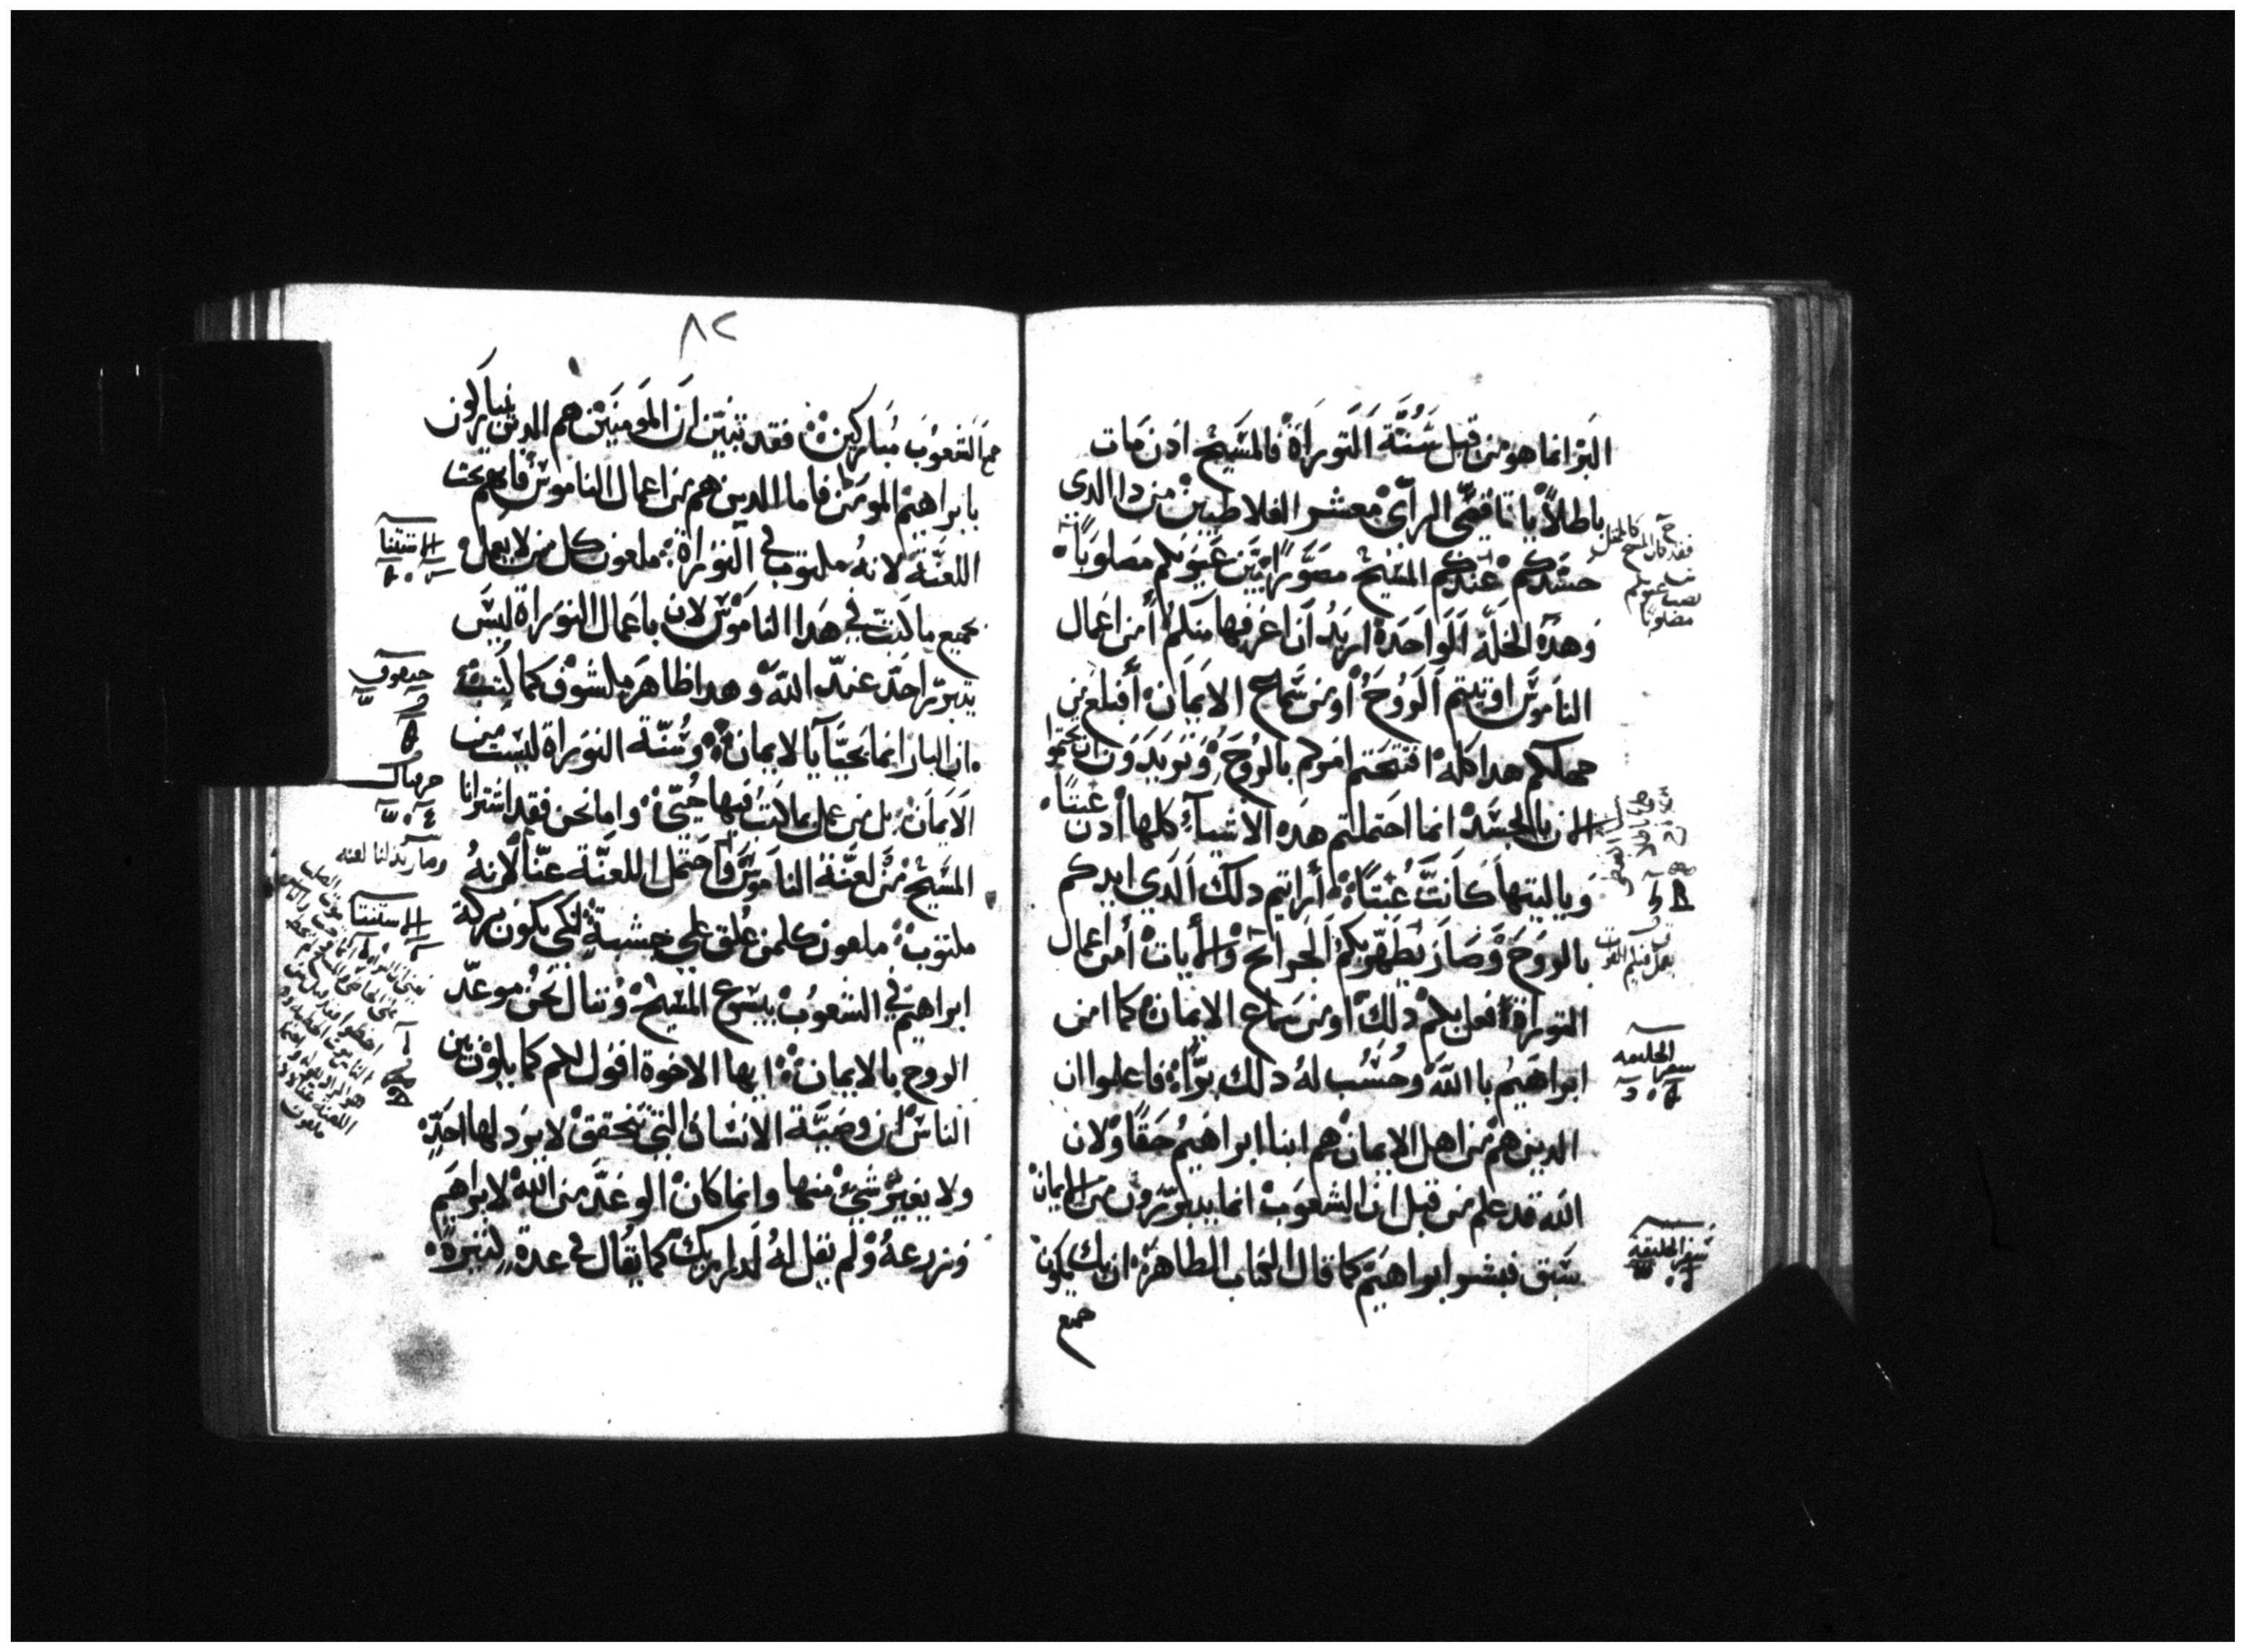 البر انما هو من قبل سنة التوراة فالمسيح اذن مات
باطلاً يا ناقصي الراي معشر الغلاطيين من دا الدي
حسدكم عندكم المسيح مصورًا بين عيونكم مصلوبًا
وهده الخلة الواحدة اريد ان اعرفها منكم أمن اعمال
الناموس اقتنيتم الروح أو من سماع الايمان أفبلغ من
جهلكم هدا كله افتتحتم امركم بالروح وتريدون ان تختموا
الان بالجسد انما احتملتم هده الاشياء كلها ادن عبتًا
وياليتها كانت عبتًا أرايتم دلك الدي ايدكم
بالروح وصار يظهر بكم الجرائح والأيات أمن اعمال
التوراة فعل بكم دلك او من سماع الايمان كما امن
ابراهيم باالله وحُسب لهُ دلك برًّا فاعلموا ان
الدين هم من اهل الايمان هم ابنا ابراهيم حقًا ولان
الله قد علم من قبل ان الشعوب انما يتبررون من الايمان
سبق فبشر ابراهيم كما قال الكتاب الطاهر ان بك يكون
جميع
فقد كان المسيح
عيونكم
مصلوبًا
سفر الخليقه
سفر الخليقه
٨٢
جميع الشعوب مباركين فقد تبين ان المومنين هم الدين يتباركون
بابراهيم المومن فاما الدين هم من اعمال الناموس فانهم تحت
اللعنة لانهُ مكتوب في التوراة ملعون كل من لا يعمل
بجميع ما كتب في هدا الناموس لان باعمال التوراة ليس
يتبرر احد عند الله وهدا ظاهر مكشوف كما كتب
ان البار انما يحيا بالايمان وسُنة التوراة ليست من
الايمان بل من عمل بما كتب فيها حيي واما نحن فقد اشترانا
المسيح من لعنة الناموس واحتمل اللعنة عنا لانهُ
مكتوب ملعون كلمن عُلق علي خشبة لكي يكون بركة
ابراهيم في الشعوب بيسوع المسيح وننال نحن موعد
الروح بالايمان ايها الاخوة اقول لكم كما يكون بين
الناس ان وصية الانسان التي تحقق لا يردلها احد
ولا يغير شي منها وانما كان الوعد من الله لابراهيم
وزرعهُ ولم يقل لهُ لدراريك كما يُقال في عدة كثيرة
الاستتنا
حبقوق
وصار بدلنا لعنه
الاستتنا